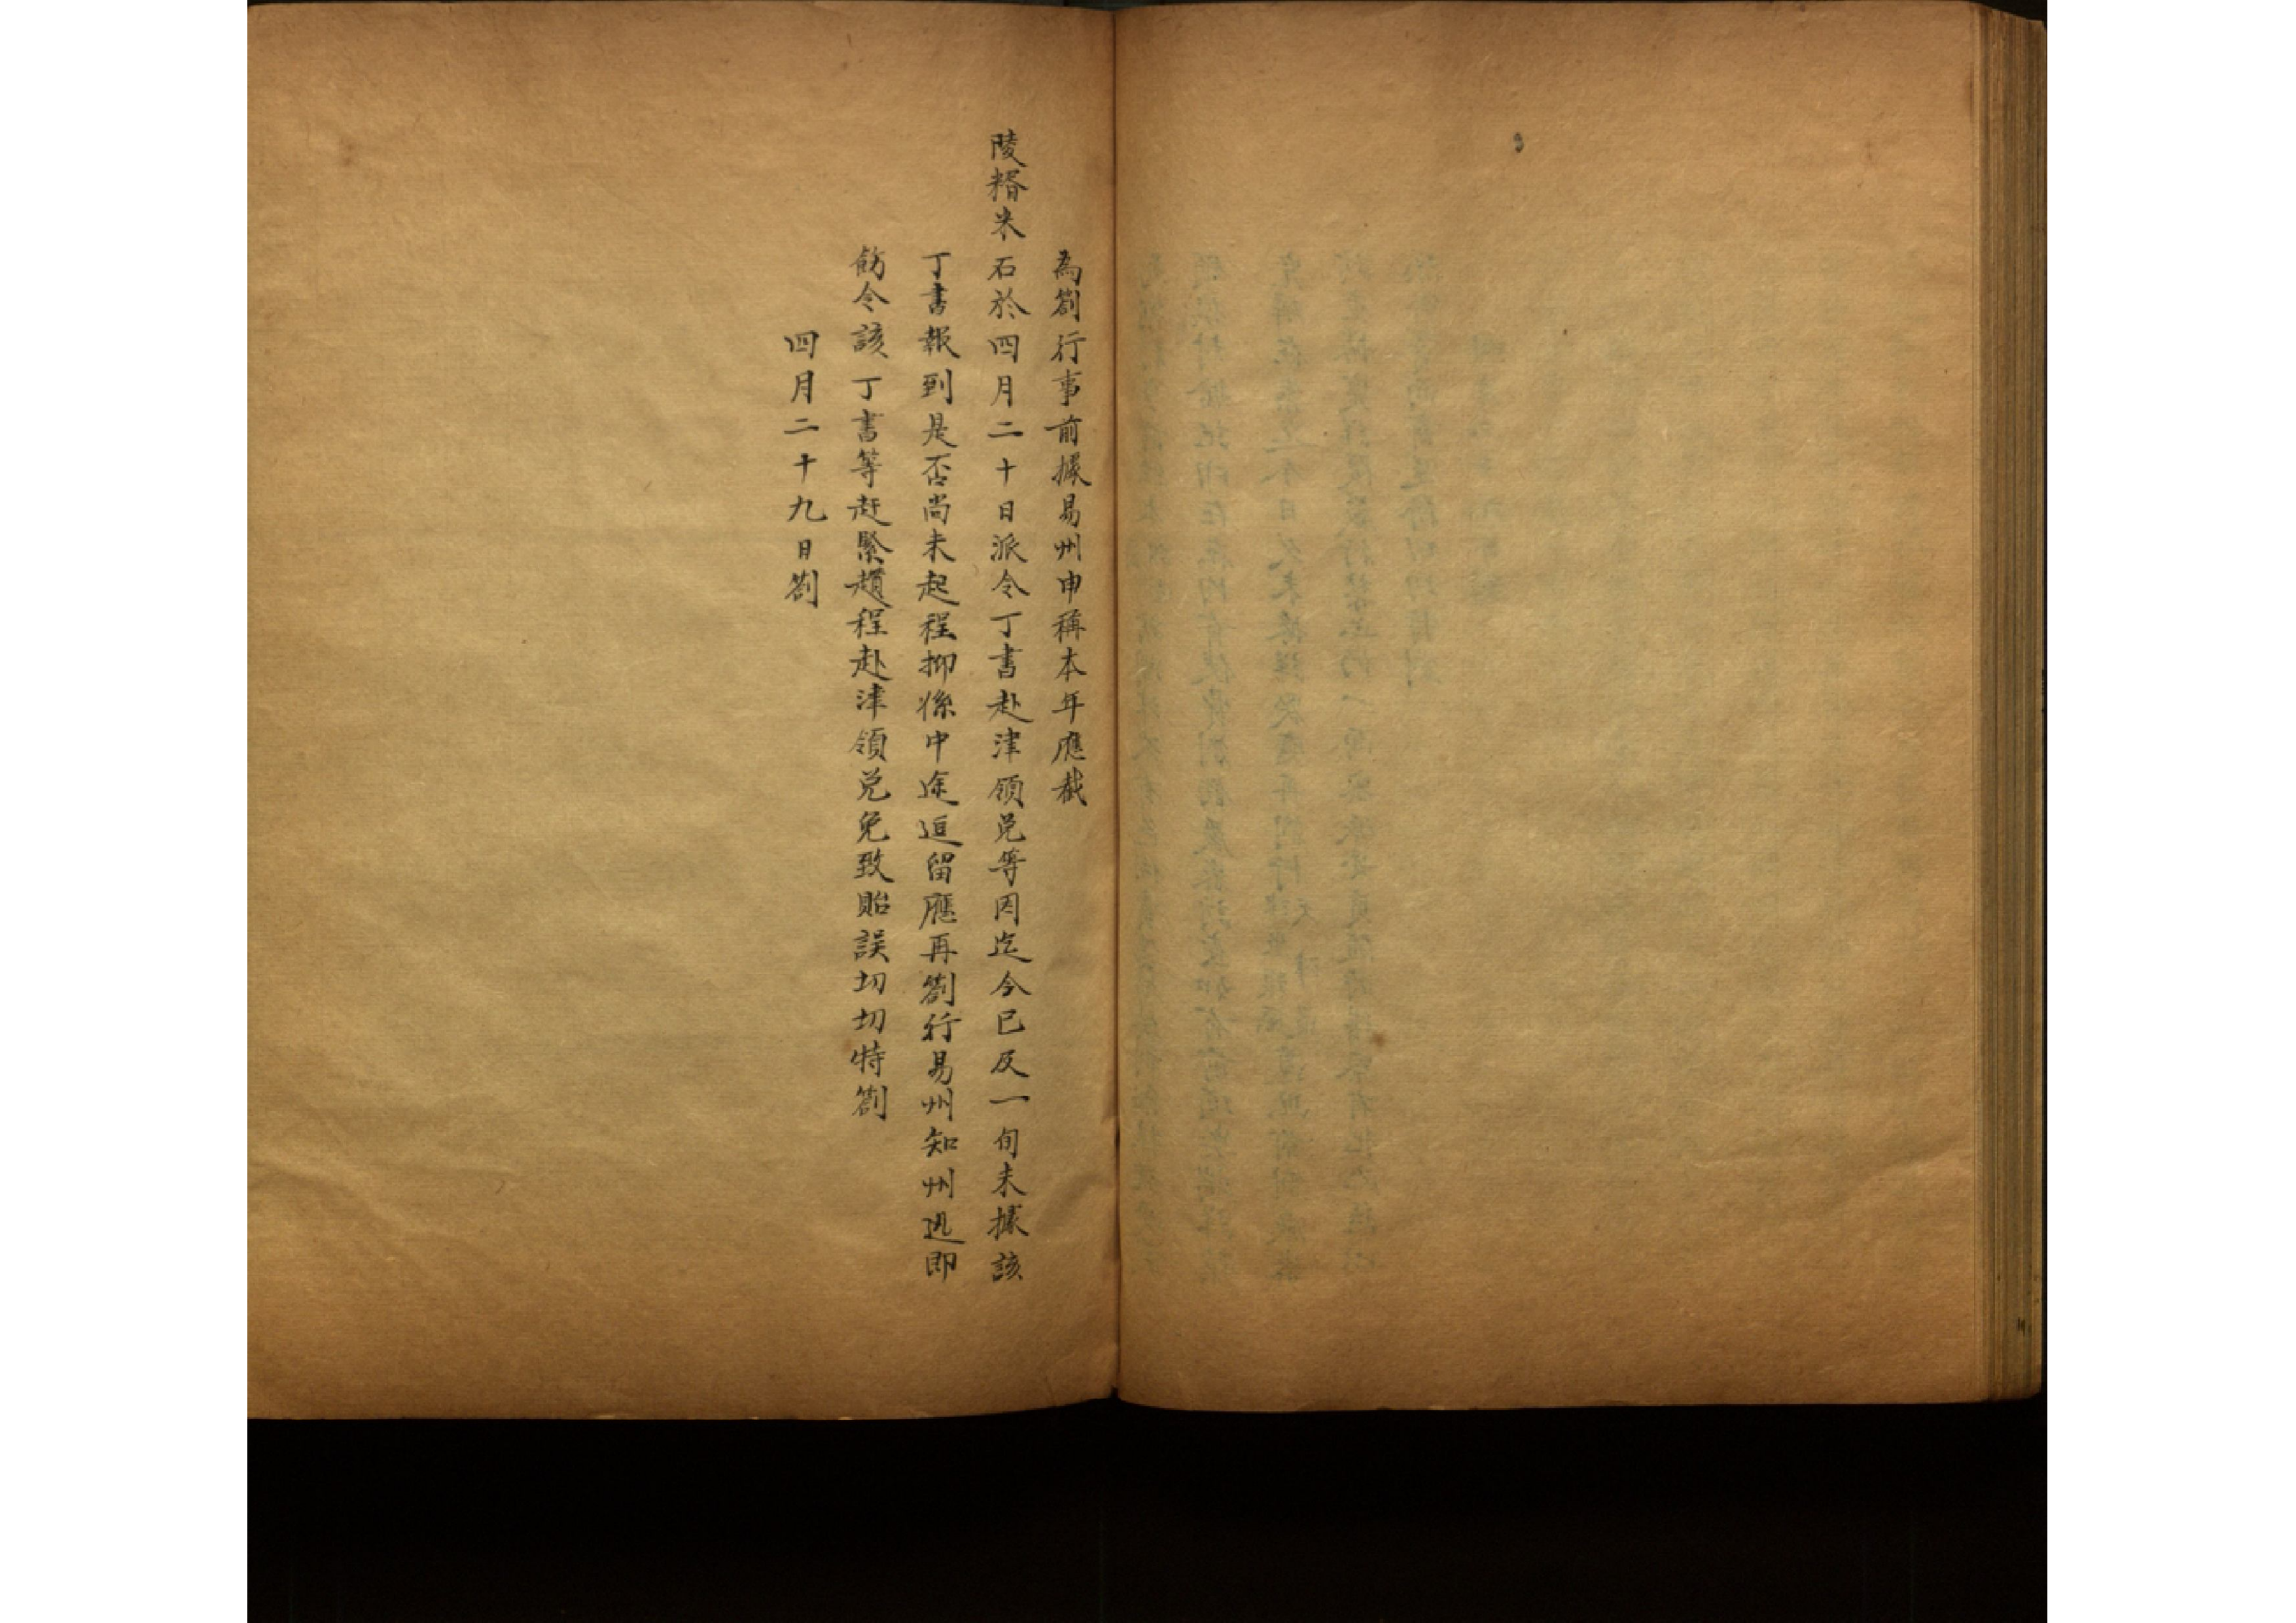 為劄行事前據易州申稱本年應截
陵糈米石於四月二十日派令丁書赴津領兌等因迄今已及一旬未據該
丁書報到是否尚未起程抑係中途逗留應再劄行易州知州迅即
飭令該丁書等赶緊趲程赴津領兌免致貽誤切切特劄
四月二十九日劄